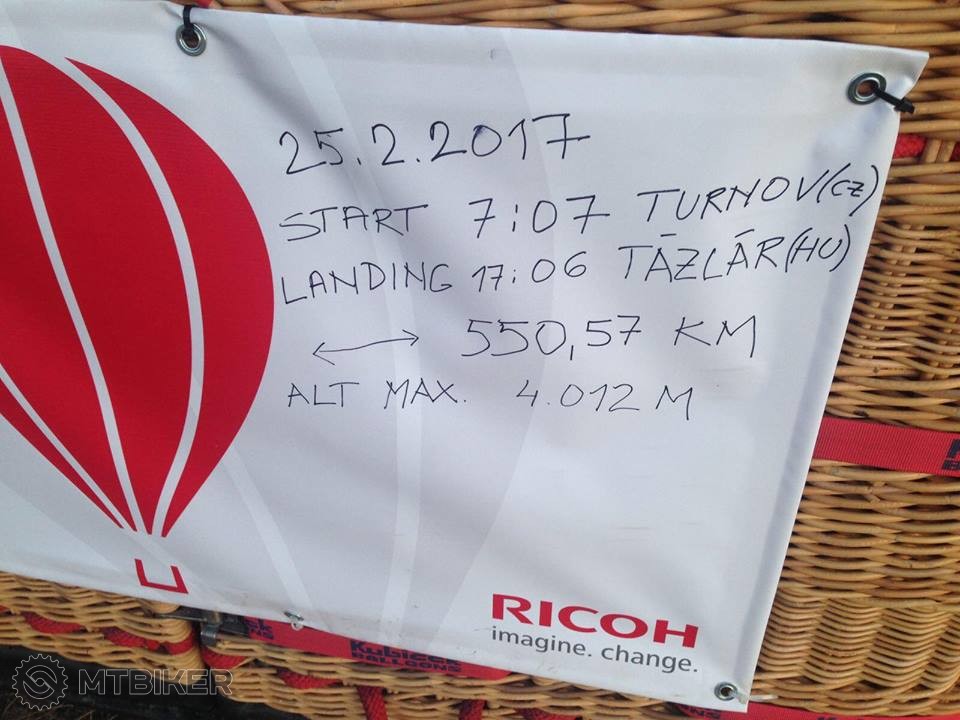 25.2.2017
START 7:07 TURNOV(CZ)
LANDING 17:06 TÁZLÁR(HU)
<-> 550,57 KM
ALT MAX. 4.012 M
RICOH
imagine. change.
Kubicek
BALLOONS
MTBIKER